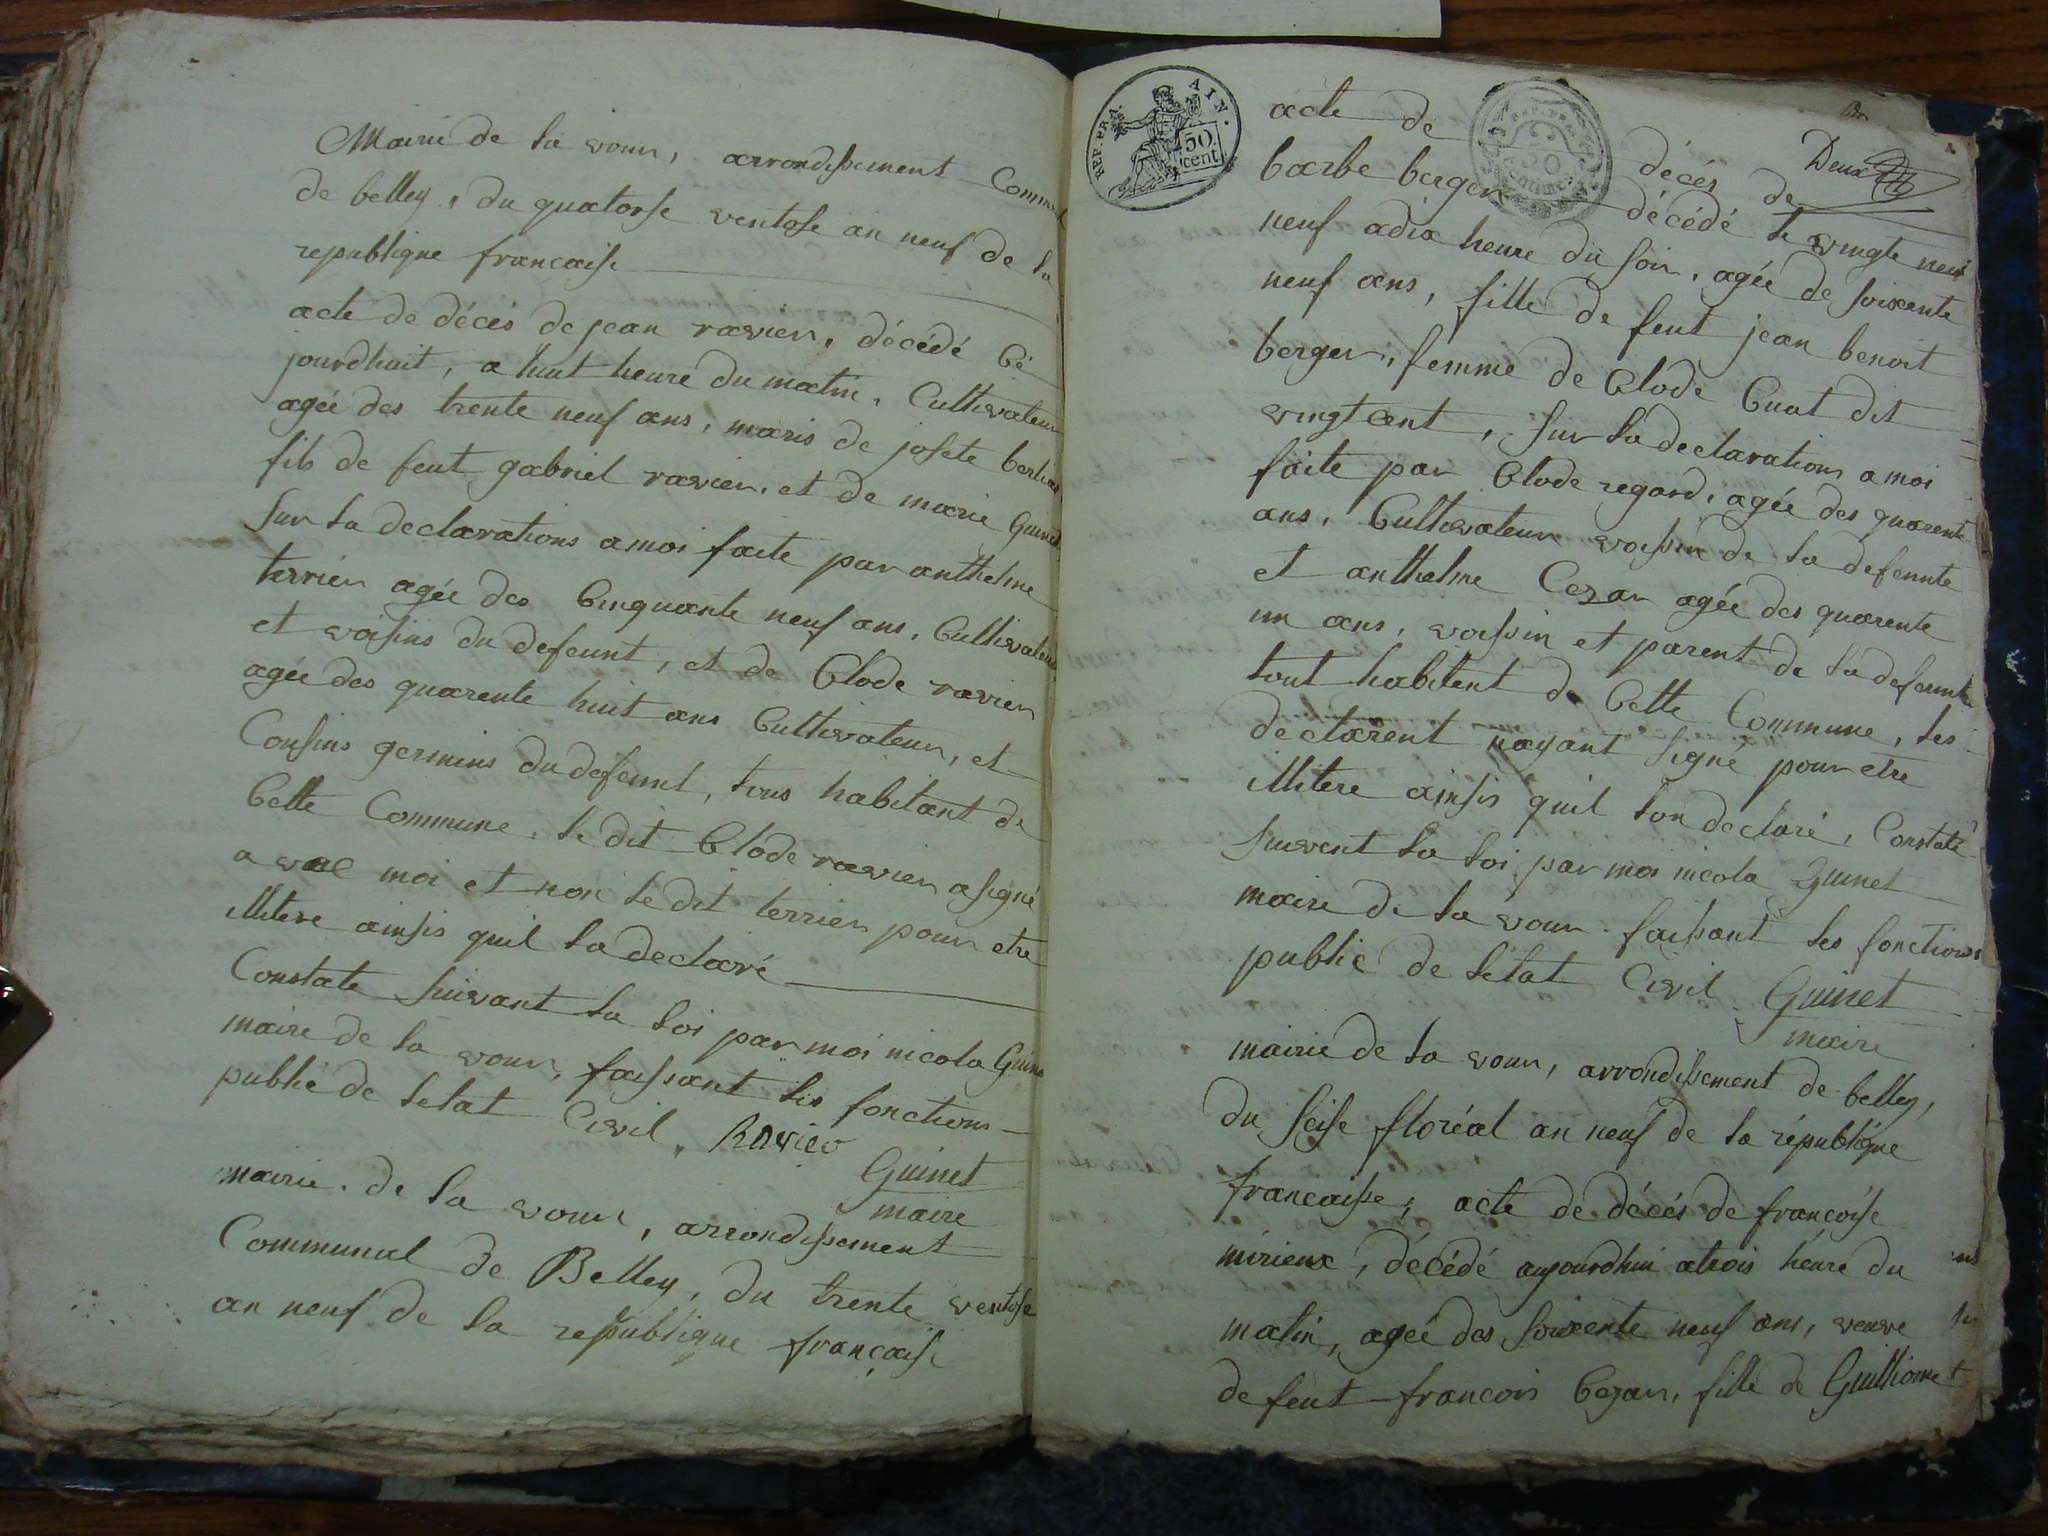 Mairie de la vour, arrondissement Commu
de belley, du quatorse ventose an neuf de la
republique francaise
acte de décés de jean ravier, décédé Cé
jourdhuit, a huit heure du matin, Cultivateur
agée des trente neuf ans, maris de josete berlion
fils de feut gabriel ravier, et de marie Guinet
sur la declarations a moi faite par anthelme
terrier agée des Cinquante neuf ans, Cultivateur
et voisins du defeunt, et de Clode ravier
agée des quarente huit ans Cultivateur, et
Cousins germins du defeunt, tous habitant de
Cette Commune, le dit Clode ravier a signé
a vec moi et non le dit terrier pour etre
illitere ainsis quil la declaré
Constate suivant la loi par moi nicola Guine
maire de la vour, faissant les fonctions
public de letat Civil, Ravier
Guinet
maire
mairie de la vour, arrondissement
Communal de Belley, du trente ventose
an neuf de la republique française
REP. FRA. AIN.
50 cent
Deux
acte de décés de
barbe berger décédé le vingte neuf
neuf a dix heure du soir, agée de soixente
neuf ans, fille de feut jean benoit
berger, femme de Clode Cuat dit
vingtcent, sur la declarations a moi
faite par Clode regard, agée des quarente
ans, Cultivateur voissin de la defeunte
et anthelme Cezar agée des quarente
un ans, voissin et parent de la defeunte
tout habitent de Cette Commune, les
declarent nayant signé pour etre
illitere ainsis quil lon declaré, Constaté
suivent la loi par moi nicola Guinet
maire de la vour faissant les fonctions
public de letat Civil Guinet
maire
mairie de la vour, arrondissement de belley,
du seise floréal an neuf de la république
francaisse, acte de décés de francoise
mirieux, décédé aujourdhui a trois heure du
matin, agée des soixente neuf ans, veuve
de feut francois Cezar, fille de Guilliomet